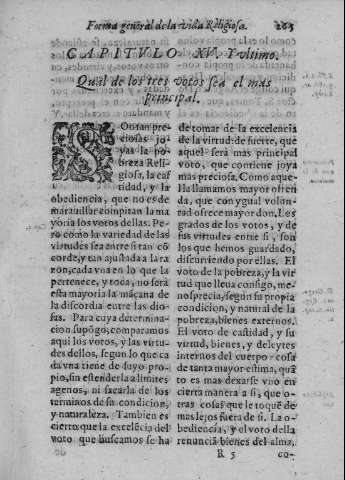 Forma general de la vida Religiosa. 265
CAPITVLO XV. Y vltimo.
Qual de los tres votos sea el mas
principal.
SOn tan pre
ciosas jo
yas la po
breza Reli
giosa, la cas
tidad, y la
obediencia, que no es de
marauillar compitan la ma
yoria los votos dellas: Pe
ro como la variedad de las
virtudes sea entre si tan cō
corde, y tan ajustada a la ra
zon, cada vna en lo que la
pertenece, y toca, no serà
esta mayoria la māçana de
la discordia entre las dio-
sas. Para cuya determina-
cion supōgo, comparamos
aqui los votos, y las virtu-
des dellos, segun lo que ca
da vna tiene de suyo pro-
pio, sin estenderla a limites
agenos, ni sacarla de los
terminos de su condicion,
y naturaleza. Tambien es
cierto que la excelēcia del
voto que buscamos se ha
de tomar de la excelencia
de la virtud: de suerte, que
aquel serà mas principal
voto, que contiene joya
mas preciosa. Como aque-
lla llamamos mayor ofren
da, que con ygual volun-
tad ofrece mayor don. Los
grados de los votos, y de
sus virtudes entre si, son
los que hemos guardado,
discurriendo por ellas. El
voto de la pobreza, y la vir
tud que lleua consigo, me-
nosprecia, segun su propia
condicion, y natural de la
pobreza, bienes externos.
El voto de castidad, y su
virtud, bienes, y deleytes
internos del cuerpo: cosa
de tanta mayor estima, quā
to es mas dexarse vno en
cierta manera a si, que o-
tras cosas que le toquē de
mas lejos fuera de si. La o-
bediencia, y el voto della
renunciā bienes del alma,
R 5 co-